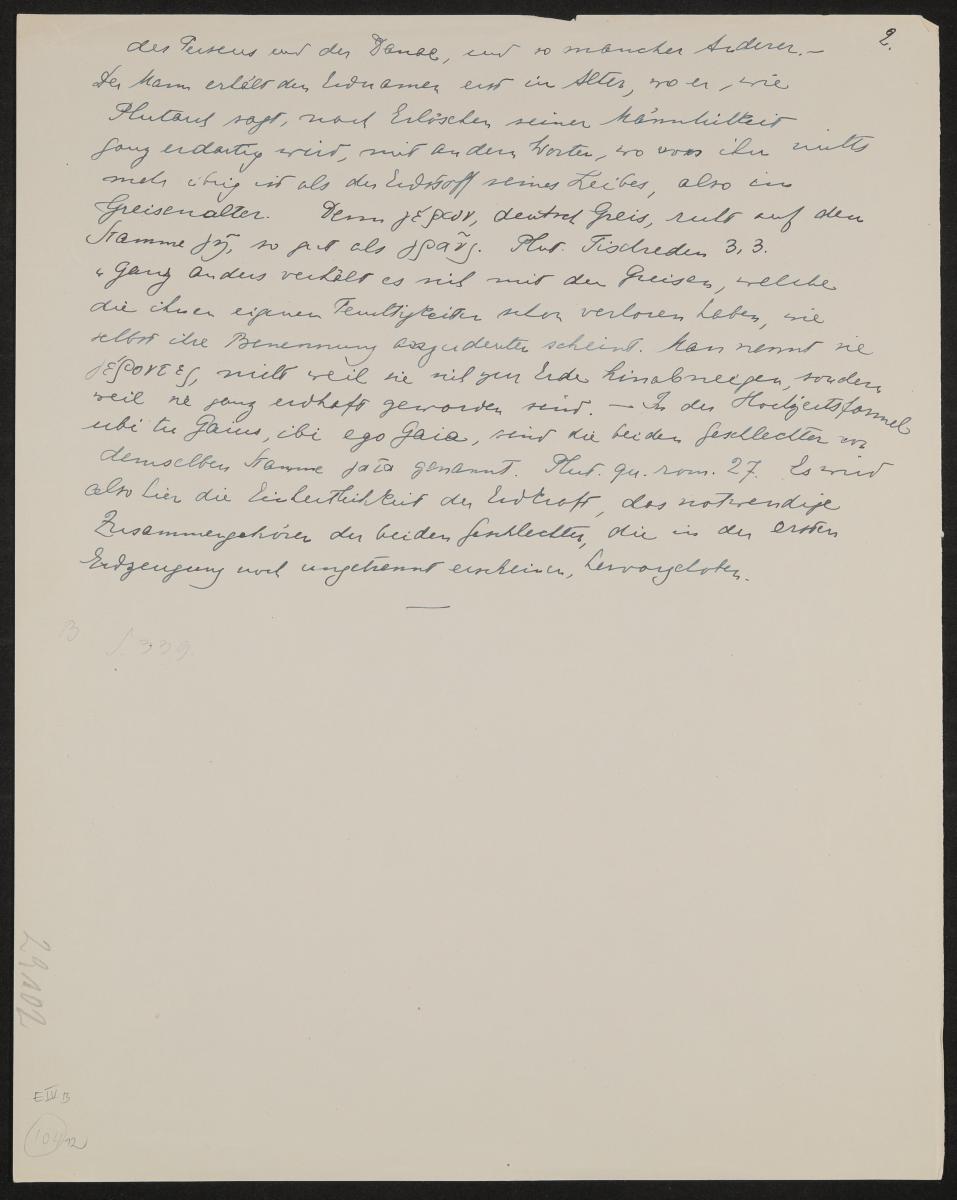 2.
des Perseus und der Danae, und so mancher Anderer. –
Der Mann erhält den Erdnamen erst im Alter, wo er, wie
Plutarch sagt, nach Erlöschen seiner Männlichkeit
ganz erdartig wird, mit andern Worten, wo von ihm nichts
mehr übrig ist als der Erdstoff seines Leibes, also im
Greisenalter. Denn γέρων, deutsch Greis, ruht auf dem
Stamme γῆ, so gut als γραῦς. Plut. Tischreden 3, 3.
„Ganz anders verhält es sich mit den Greisen, welche
die ihnen eigenen Feuchtigkeiten schon verloren haben, wie
selbst ihre Benennung anzudeuten scheint. Man nennt sie
γέροντες, nicht weil sie sich zur Erde hinabneigen, sondern
weil sie ganz erdhaft geworden sind. — In der Hochzeitsformel
ubi tu Gaius, ibi ego Gaia, sind die beiden Geschlechter von
demselben Stamme γαῖα genannt. Plut. qu. rom. 27. Es wird
also hier die Einheitlichkeit der Erdkraft, das notwendige
Zusammengehören der beiden Geschlechter, die in der ersten
Erdzeugung noch ungetrennt erscheinen, hervorgehoben.
B S. 339.
29,102
E IV B
104 12